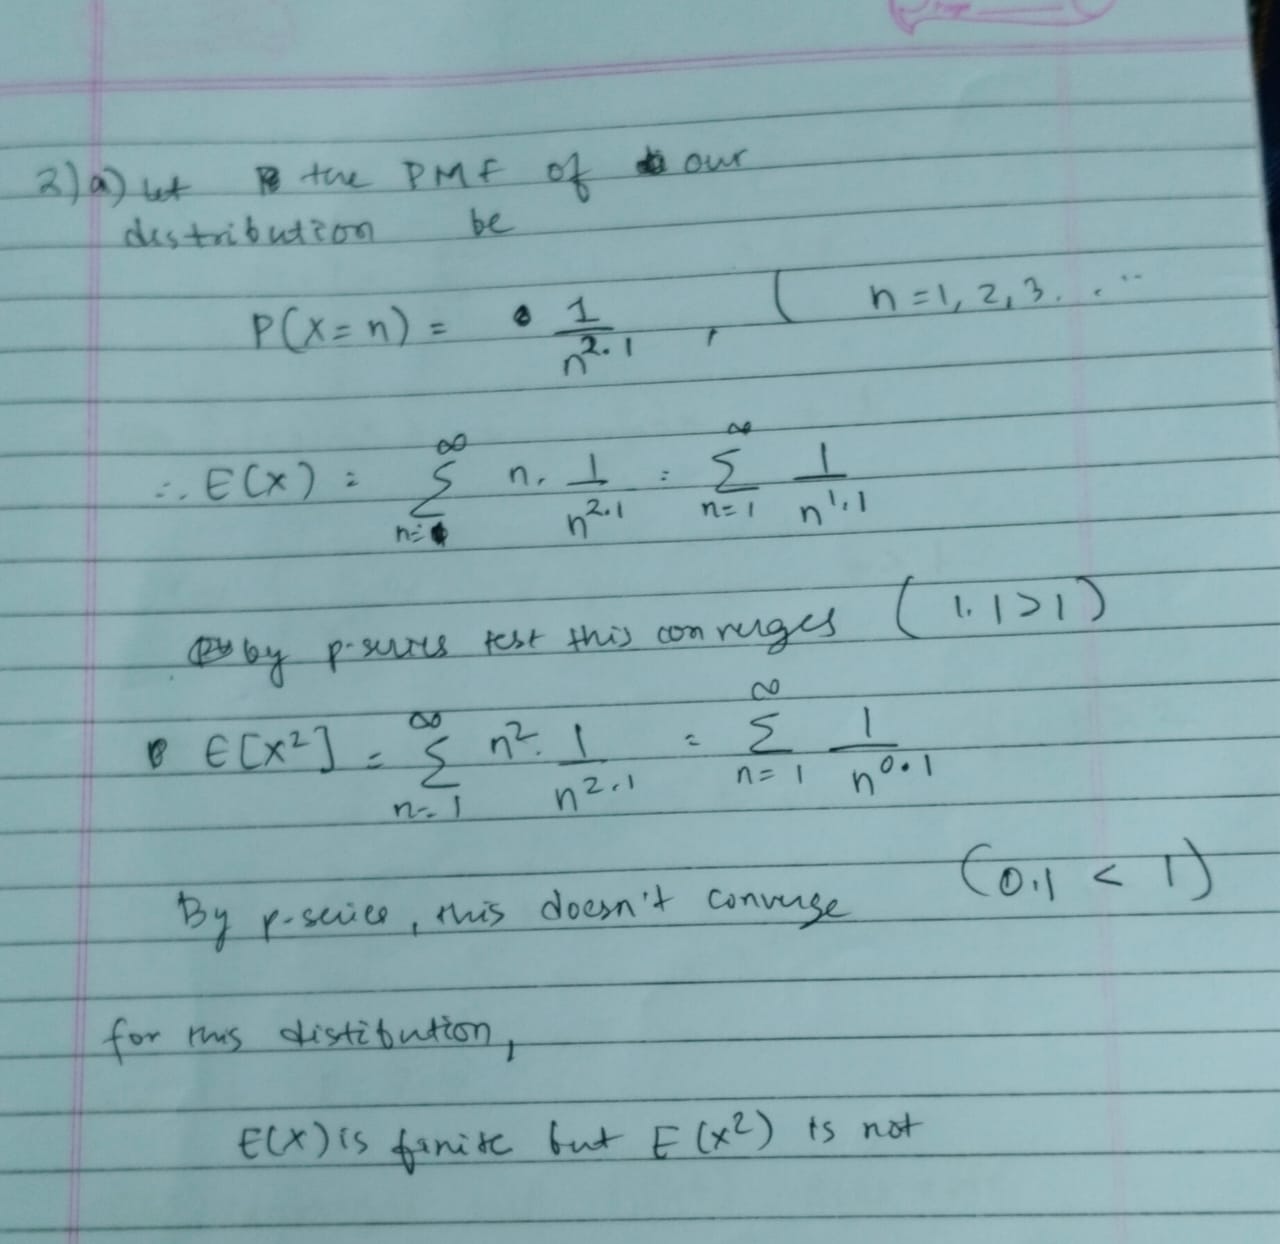 2) a) let the PMF of our
distribution be
P(X = n) = 1/n^2.1 , ( n = 1, 2, 3. . ..
∴ E(X) = ∑_{n=}^{∞} n. 1/n^2.1 = ∑_{n=1}^{∞} 1/n^1.1
by p-series test this converges (1.1 > 1)
E[X²] = ∑_{n=1}^{∞} n². 1/n^2.1 = ∑_{n=1}^{∞} 1/n^0.1
By p-series, this doesn't converge (0.1 < 1)
for this distibution,
E(X) is finite but E(X²) is not